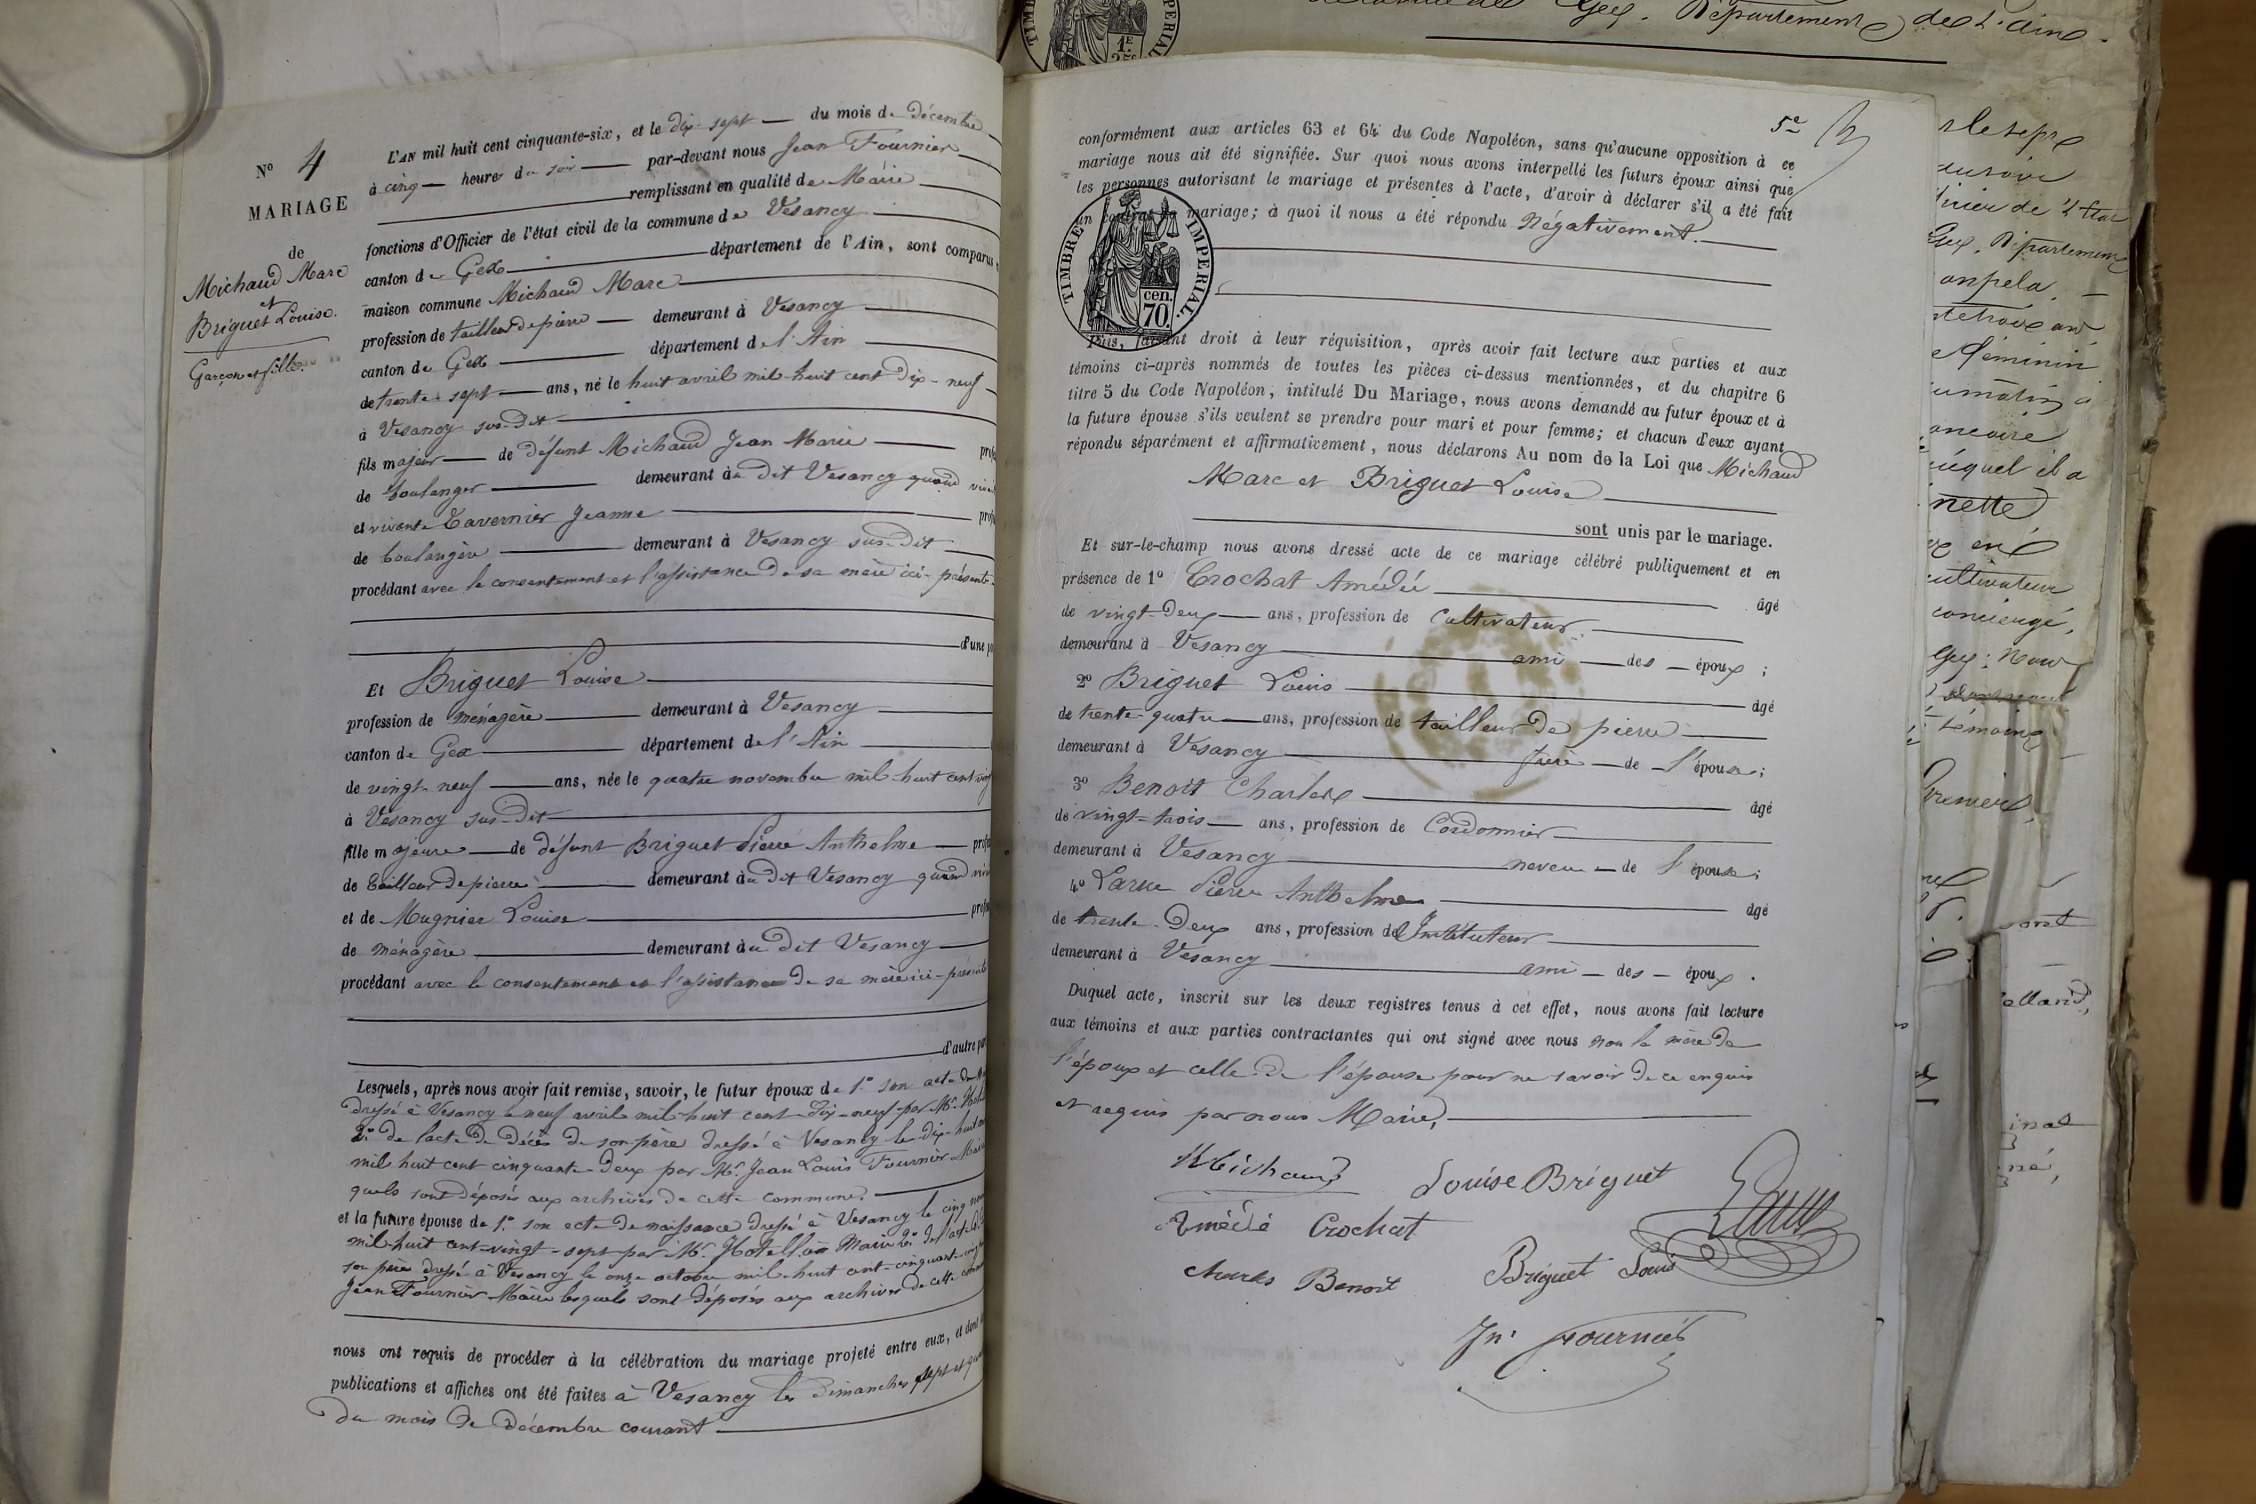 N° 4
MARIAGE
de
Michaud Marc
et
Briguet Louise.
Garçon et fille.
L'AN mil huit cent cinquante-six, et le dix-sept du mois de décembre
à cinq heures du soir par-devant nous Jean Fournier
remplissant en qualité de Maire
fonctions d'Officier de l'état civil de la commune de Vesancy
canton de Gex département de l'Ain, sont comparus
maison commune Michaud Marc
profession de tailleur de pierre demeurant à Vesancy
canton de Gex département de l'Ain
de trente-sept ans, né le huit avril mil-huit cent dix-neuf
à Vesancy sus-dit
fils majeur de défunt Michaud Jean Marie
de boulanger demeurant au dit Vesancy quand
et vivante Tavernier Jeanne
de boulangère demeurant à Vesancy sus-dit
procédant avec le consentement et l'assistance de sa mère ici-présente
d'une
Et Briguet Louise
profession de ménagère demeurant à Vesancy
canton de Gex département de l'Ain
de vingt-neuf ans, née le quatre novembre mil-huit cent vingt
à Vesancy sus-dit
fille majeure de défunt Briguet Pierre Anthelme
de tailleur de pierre demeurant au dit Vesancy quand
et de Mugnier Louise
de ménagère demeurant au dit Vesancy
procédant avec le consentement et l'assistance de sa mère ici-présente
d'autre
Lesquels, après nous avoir fait remise, savoir, le futur époux de 1° son acte de
dressé à Vesancy le neuf avril mil-huit cent dix-neuf par Mr.
2° de l'acte de décès de son père dressé à Vesancy le dix-huit
mil huit cent cinquante-deux par Mr. Jean Louis Fournier Maire
quels sont déposés aux archives de cette commune.
et la future épouse de 1° son acte de naissance dressé à Vesancy le cinq
mil-huit cent-vingt-sept par Mr. Maire 2° de l'acte
son père dressé à Vesancy le onze octobre mil-huit cent-cinquante
Jean Fournier Maire lesquels sont déposés aux archives de cette
nous ont requis de procéder à la célébration du mariage projeté entre eux, et dont
publications et affiches ont été faites à Vesancy les dimanches sept et
du mois de décembre courant
5e
conformément aux articles 63 et 64 du Code Napoléon, sans qu'aucune opposition à ce
mariage nous ait été signifiée. Sur quoi nous avons interpellé les futurs époux ainsi que
les personnes autorisant le mariage et présentes à l'acte, d'avoir à déclarer s'il a été fait
un contrat de mariage; à quoi il nous a été répondu Négativement.
TIMBRE IMPERIAL.
cen.
70.
Puis, faisant droit à leur réquisition, après avoir fait lecture aux parties et aux
témoins ci-après nommés de toutes les pièces ci-dessus mentionnées, et du chapitre 6
titre 5 du Code Napoléon, intitulé Du Mariage, nous avons demandé au futur époux et à
la future épouse s'ils veulent se prendre pour mari et pour femme; et chacun d'eux ayant
répondu séparément et affirmativement, nous déclarons Au nom de la Loi que Michaud
Marc et Briguet Louise
sont unis par le mariage.
Et sur-le-champ nous avons dressé acte de ce mariage célébré publiquement et en
présence de 1° Crochat Amédée âgé
de vingt-deux ans, profession de Cultivateur
demeurant à Vesancy ami des époux;
2° Briguet Louis âgé
de trente-quatre ans, profession de tailleur de pierre
demeurant à Vesancy frère de l'épouse;
3° Benoit Charles âgé
de vingt-trois ans, profession de Cordonnier
demeurant à Vesancy neveu de l'épouse;
4° Larue Pierre Anthelme âgé
de trente-deux ans, profession d'Instituteur
demeurant à Vesancy ami des époux.
Duquel acte, inscrit sur les deux registres tenus à cet effet, nous avons fait lecture
aux témoins et aux parties contractantes qui ont signé avec nous non la mère de
l'époux et celle de l'épouse pour ne savoir de ce enquis
et requis par nous Maire,
Michaud
Louise Briguet
Larue
Amédé Crochat
Briguet Louis
Charles Benoit
Jn. Fournier
Gex. Département de l'Ain.